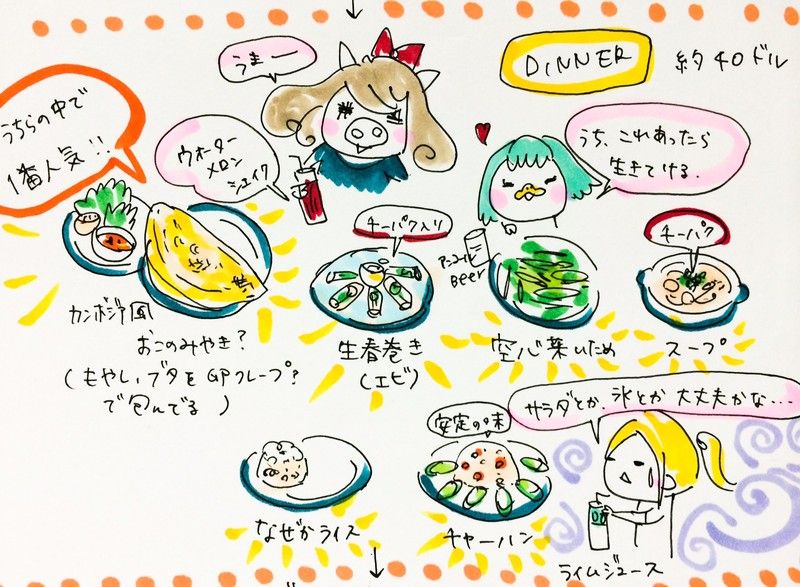 DINNER
約40ドル
うまー
うちらの中で
1番人気!!
ウォーター
メロン
シェイク
うち、これあったら
生きてける。
チーパク入り
チーパク
アンコール
Beer
カンボジア風
おこのみやき?
(もやし、ブタを
クレープ?
で包んでる)
生春巻き
(エビ)
空心菜いため
スープ
サラダとか、氷とか 大丈夫かな...
安定の味
なぜかライス
チャーハン
ライムジュース